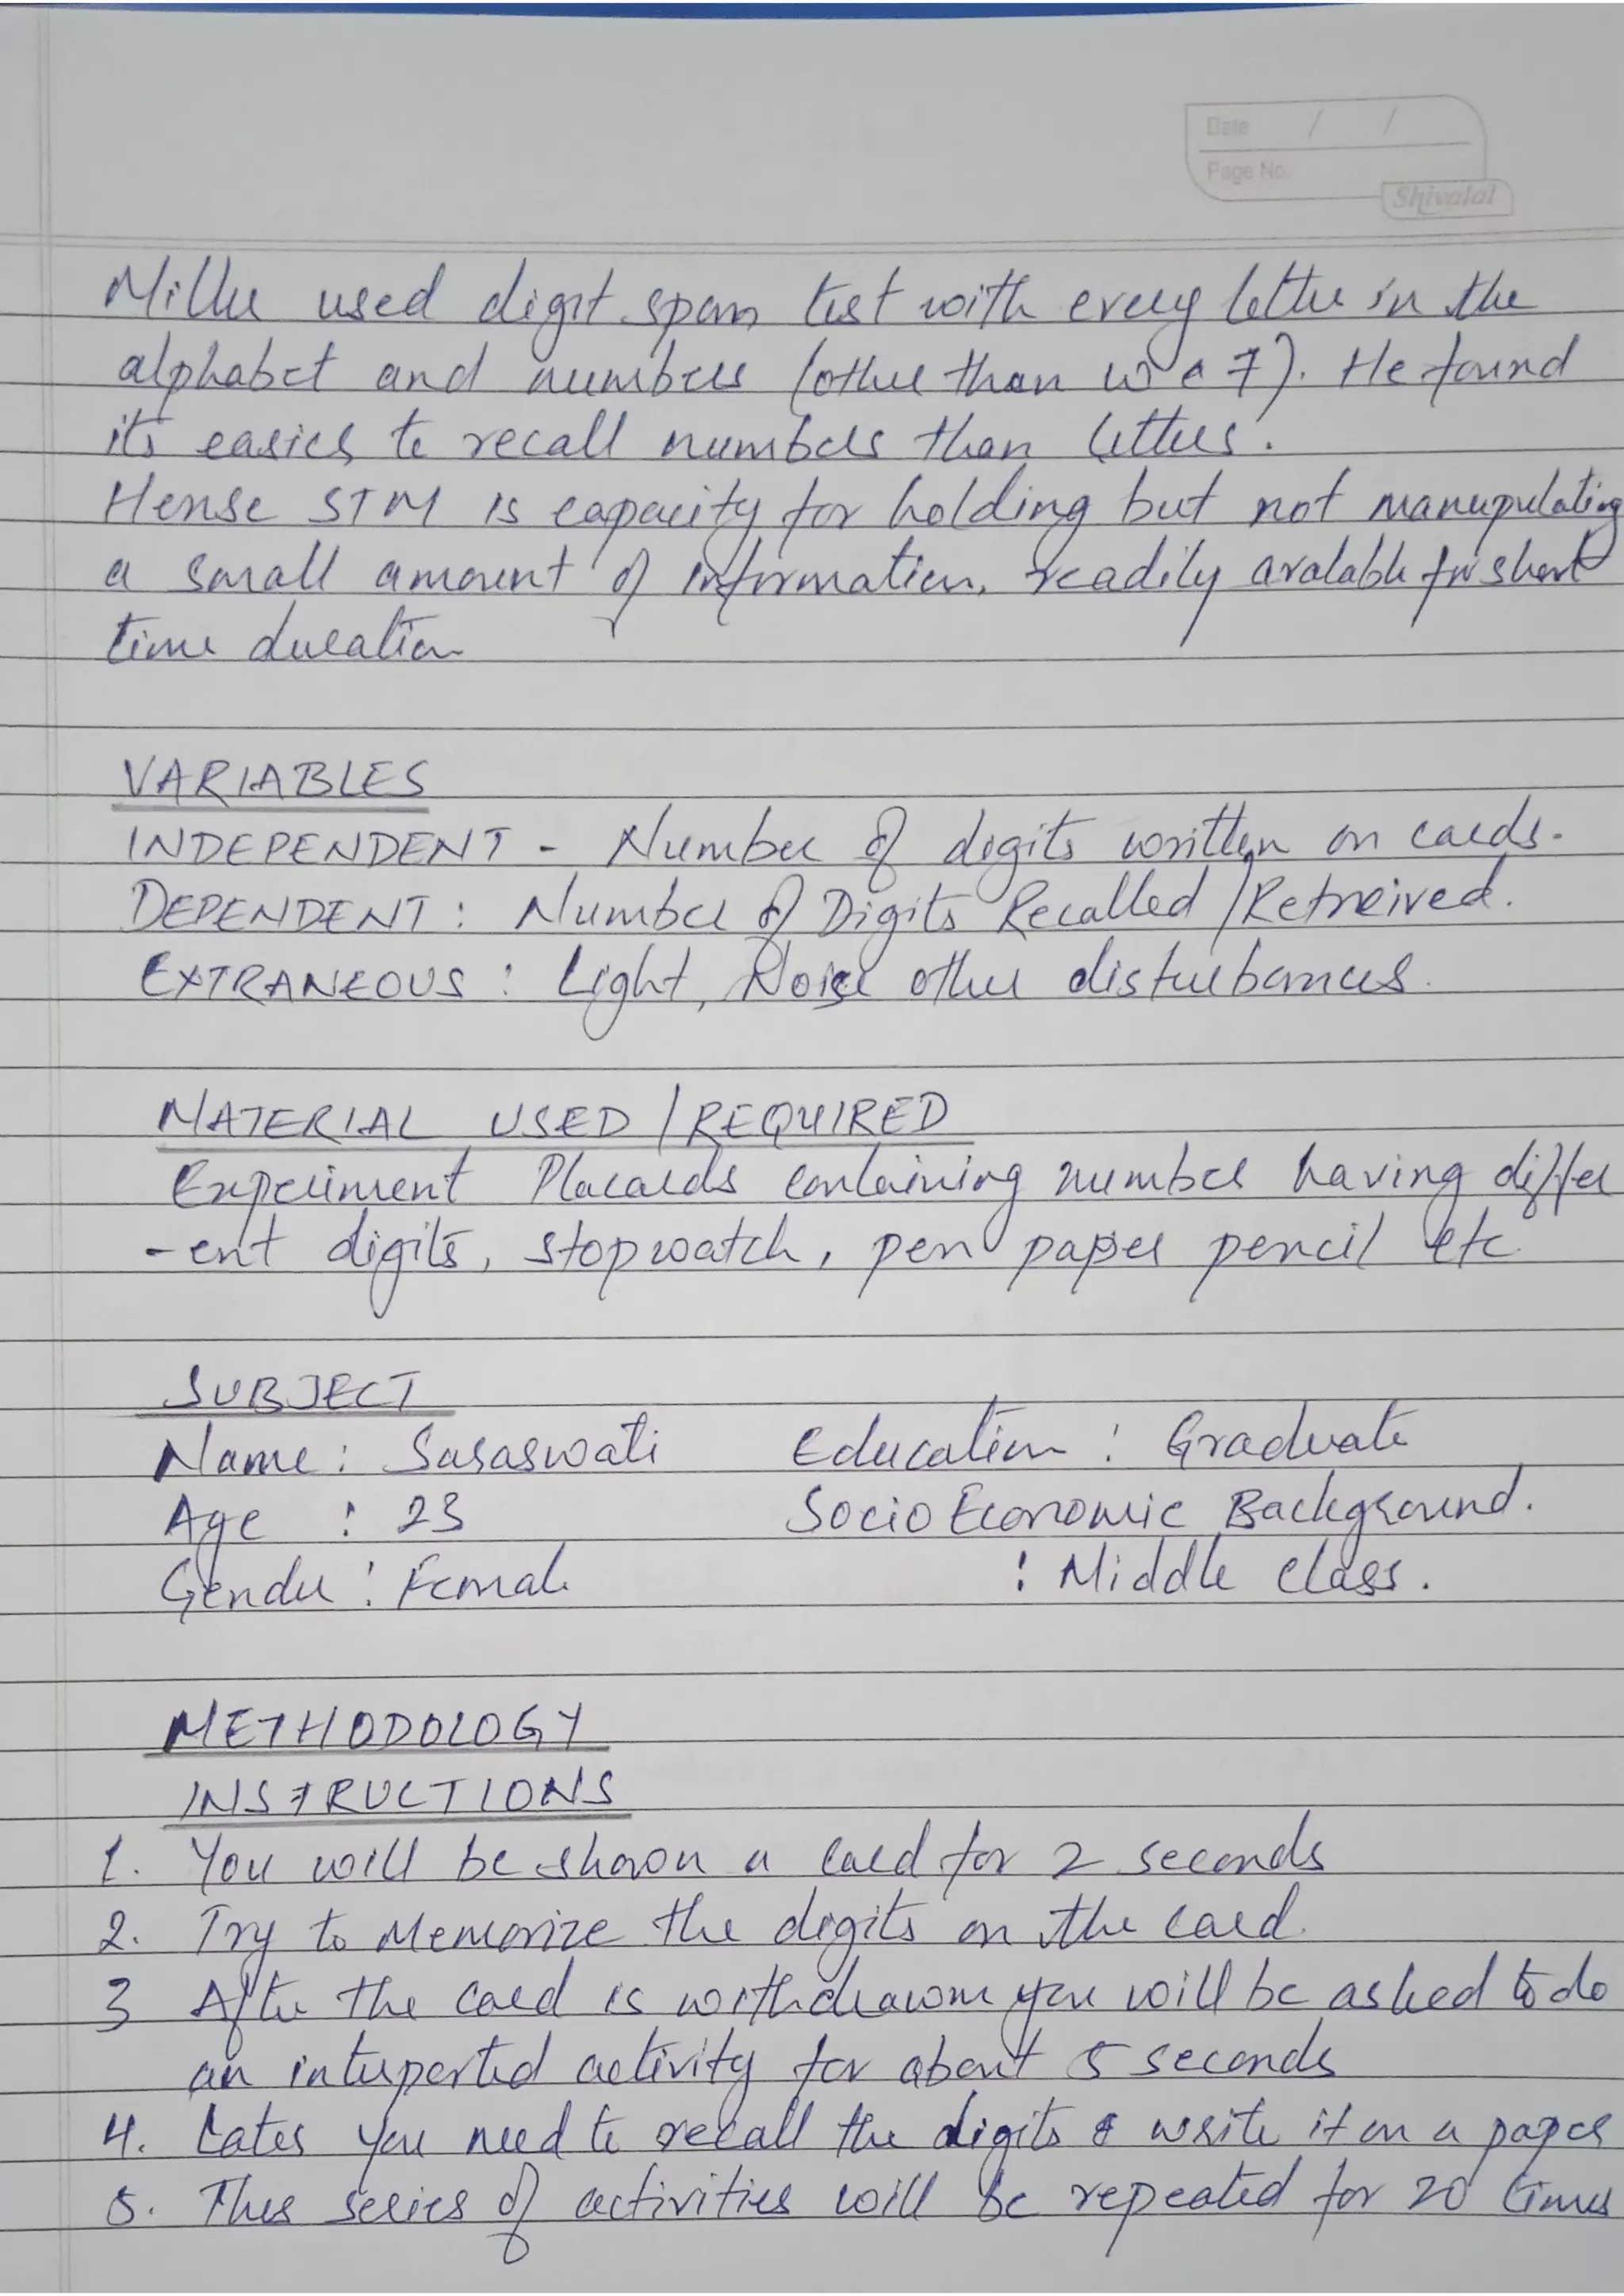 Date / /
Page No.
Shivalal
Miller used digit span test with every letter in the
alphabet and numbers (other than w & 7). He found
its easier to recall numbers than letters.
Hense STM is capacity for holding but not manupulating
a small amount of information, readily avalable for short
time duration
VARIABLES
INDEPENDENT - Number of digits written on cards.
DEPENDENT : Number of Digits Recalled / Retreived.
EXTRANEOUS : Light, Noise other disturbances.
MATERIAL USED / REQUIRED
Experiment Placards containing number having differ
-ent digits, stopwatch, pen paper pencil etc
SUBJECT
Name : Saraswati Education : Graduate
Age : 23 Socio Economic Background.
Gender : Female : Middle class.
METHODOLOGY
INSTRUCTIONS
1. You will be shown a card for 2 seconds
2. Try to Memorize the digits on the card.
3 After the card is withdrawn you will be asked to do
an interperted activity for about 5 seconds
4. Later you need to recall the digits & write it on a paper
5. This series of activities will be repeated for 20 times